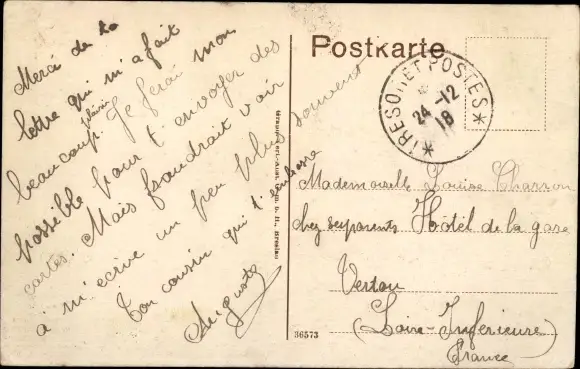 Merci de ta
lettre qui m'a fait
plaisir
beaucoup. Je ferai mon
possible pour t'envoyer des
cartes. Mais faudrait voir
a m'ecrire un peu plus souvent
Ton cousin qui t'embrasse
Auguste
Postkarte
TRESOR ET POSTES
24 -12
18
Mademoiselle Louise Charron
chez ses parents Hôtel de la gare
Vertou
(Loire-Inferieure)
France
36573